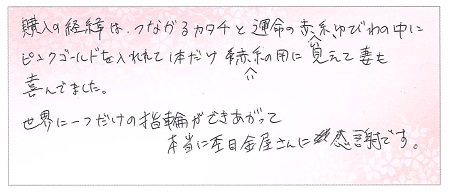 購入の経緯は、つながるカタチと運命の赤い糸ゆびわの中に
ピンクゴールドを入れれて1本だけ赤い糸の用に見えて妻も
喜んでました。
世界に一つだけの指輪ができあがって
本当に杢目金屋さんに感謝です。